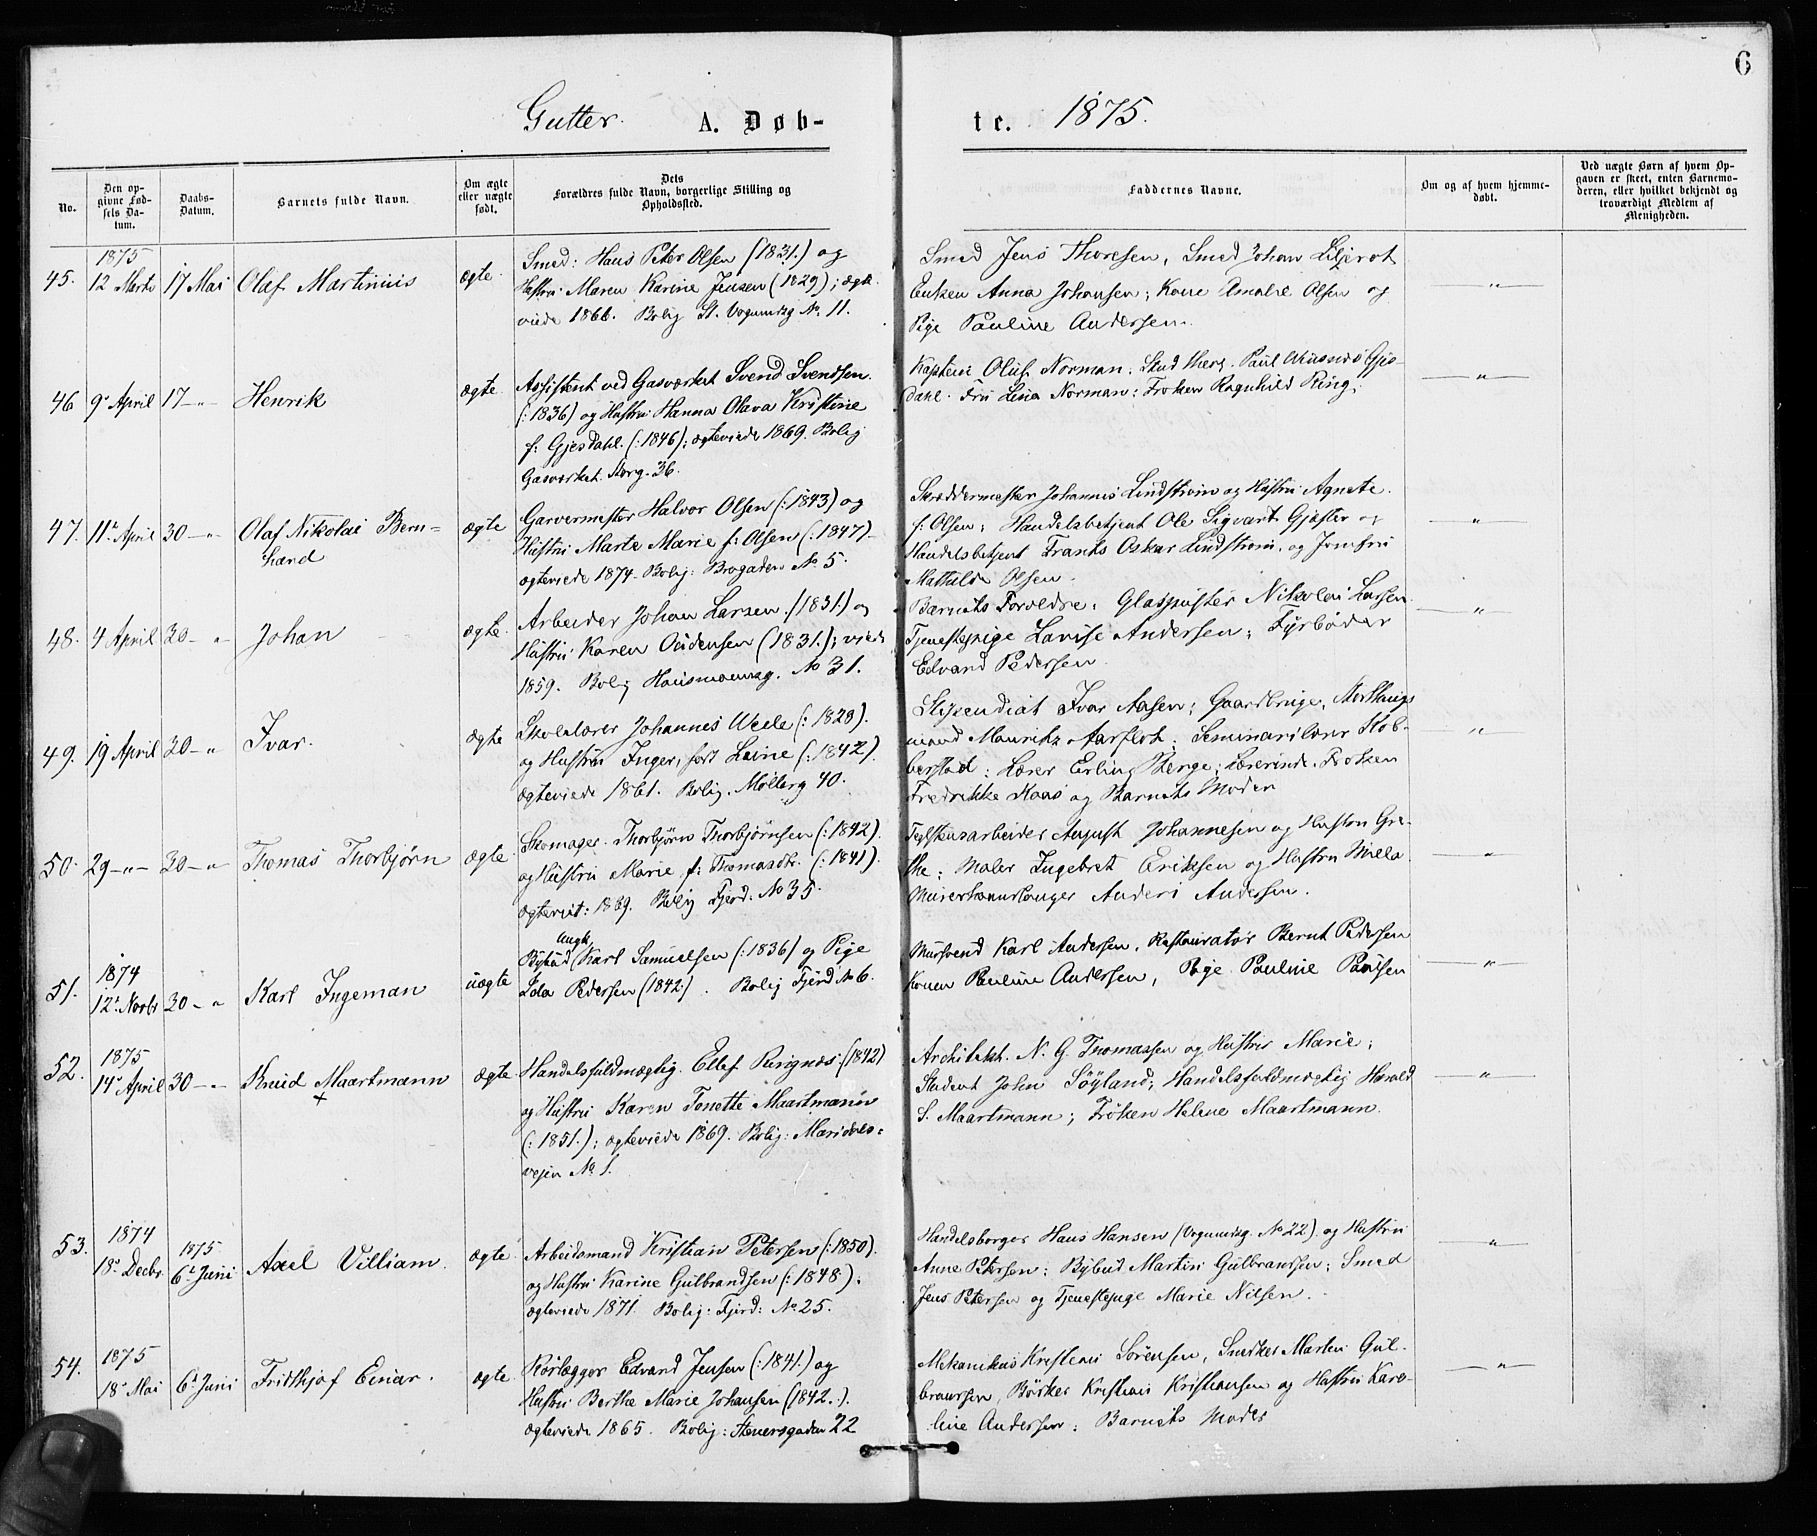 6
Gutter. A. Døb-
te. 1875.
No.
Den op-
givne Fød-
sels Da-
tum.
Daabs-
Datum.
Barnets fulde Navn.
Om ægte
eller uægte
født.
Dets
Forældres fulde Navn, borgerlige Stilling og
Opholdssted.
Faddernes Navne.
Om og af hvem hjemme-
døbt.
Ved uægte Børn af hvem Op-
gaven er skeet, enten Barnemo-
deren, eller hvilket bekjendt og
troværdigt Medlem af
Menigheden.
45. 1875
12 Marts 17 Mai Olaf Martinius ægte.
Smed: Hans Peter Olsen (1831.) og
Hustru Maren Karine Jensen (1829); ægte-
viede 1866. Bolig St. Vognmdsg No 11.
Smed Jens Thoresen, Smed Johan Liljerot
Enken Anna Johansen; Kone Amalie Olsen og
Pige Pauline Andersen.
— " —
46 9 April 17 - " - Henrik ægte
Assistent ved Gasværket Svend Svendsen.
(: 1836) og Hustru Hanna Olava Kristine
f: Gjesdahl. (: 1846); ægteviede 1869. Bolig
Gasværket. Storg. 36.
Kaptein Oluf Norman; Stud Theol. Paul Gjes-
dahl. Fru Lina Norman; Frøken Ragnhild Ring;
— " —
47. 11 April 30 - " Olaf Nikolai Bern-
hard ægte
Garvermester Halvor Olsen (: 1843) og
Hustru Marte Marie f: Olsen (: 1847)
ægteviede 1874. Bolig: Brogaden No 5.
Skræddermester Johannes Lindstrøm og Hustru Agnete
f: Olsen; Handelsbetjent Ole Sigvart Gjøster og
Handelsbetjent Frants Oskar Lindstrøm, og Jomfru
Mathilde Olsen.
— " —
48. 4 April 30 - " Johan ægte.
Arbeider Johan Larsen (1831) og
Hustru Karen Audensen (1831.); viede
1859. Bolig Hausmannsg. No 31.
Barnets Forældre; Glaspuster Nikolai Larsen
Tjenestepige Lovise Andersen; Fyrbøder
Edvard Pedersen.
— " —
49. 19 April 30 - " Ivar. ægte
Skolelærer Johannes Weele (: 1828).
og Hustru Inger, født Leine (: 1842)
ægteviede 1861. Bolig. Møllerg 40.
Stipendiat Ivar Aasen; Gaardbruger, Storthings
mand Mauritz Aarflot; Seminarilærer Hob-
berstad; Lærer Erling Berge; Lærerinde, Frøken
Fredrikke Kaas og Barnets Moder
— " —
50. 29 - " - 30 - " Thomas Thorbjørn ægte
Skomager Thorbjørn Thorbjørnsen (: 1842).
og Hustru Marie f: Thomasdt. (: 1841).
ægteviet: 1869. Bolig Fjerd: No 35.
Teglstensarbeider August Johannesen og Hustru Gre-
the; Maler Ingebret Eriksen og Hustru Milla
Murerhaandlanger Anders Andersen.
— " —
51. 1874
12 Novbr 30 - " Karl Ingeman uægte
Ungk.
Bybud Karl Samuelsen (: 1836) og Pige
Ida Pedersen (1842.). Bolig Fjerd No 6.
Mursvend Karl Andersen, Restauratør Bernt Pedersen
Konen Pauline Andersen, Pige Pauline Paulsen
— " —
52. 1875
14 April 30 - " Knud Maartmann ægte.
x
Handelsfuldmægtig. Ellef Ringnes (1842)
og Hustru Karen Tonette Maartmann
(: 1851.); ægteviede 1869. Bolig: Maridals-
vejen No 1.
Architekt. N. G. Thomassen og Hustru Marie;
Student John Söyland; Handelsfuldmægtig Harald
S. Maartmann; Frøken Helene Maartmann.
— " —
53. 1874
18 Decbr. 1875
6 Juni Axel Villiam. ægte
Arbeidsmand Kristian Petersen (: 1850).
og Hustru Karine Gulbrandsen (: 1848);
ægteviede 1871. Bolig: Fjerd: No 25.
Handelsborger Hans Hansen (Vognmdsg. No 22) og Hustru
Anne Petersen; Bybud Martin Gulbranssen; Smed
Jens Petersen og Tjenestepige Marie Nilsen.
— " —
54. 1875
18 Mai 6 Juni Fridthjof Einar. ægte.
Rørlægger Edvard Jensen (: 1841.) og
Hustru Berthe Marie Johansen (1842.).
ægteviede 1865. Bolig: Stenersgaden 22
Mekanikus Kristian Sørensen, Snedker Martin Gul-
branssen, Bødker Kristian Kristiansen og Hustru Karo-
line Andersen; Barnets Moder
— " —